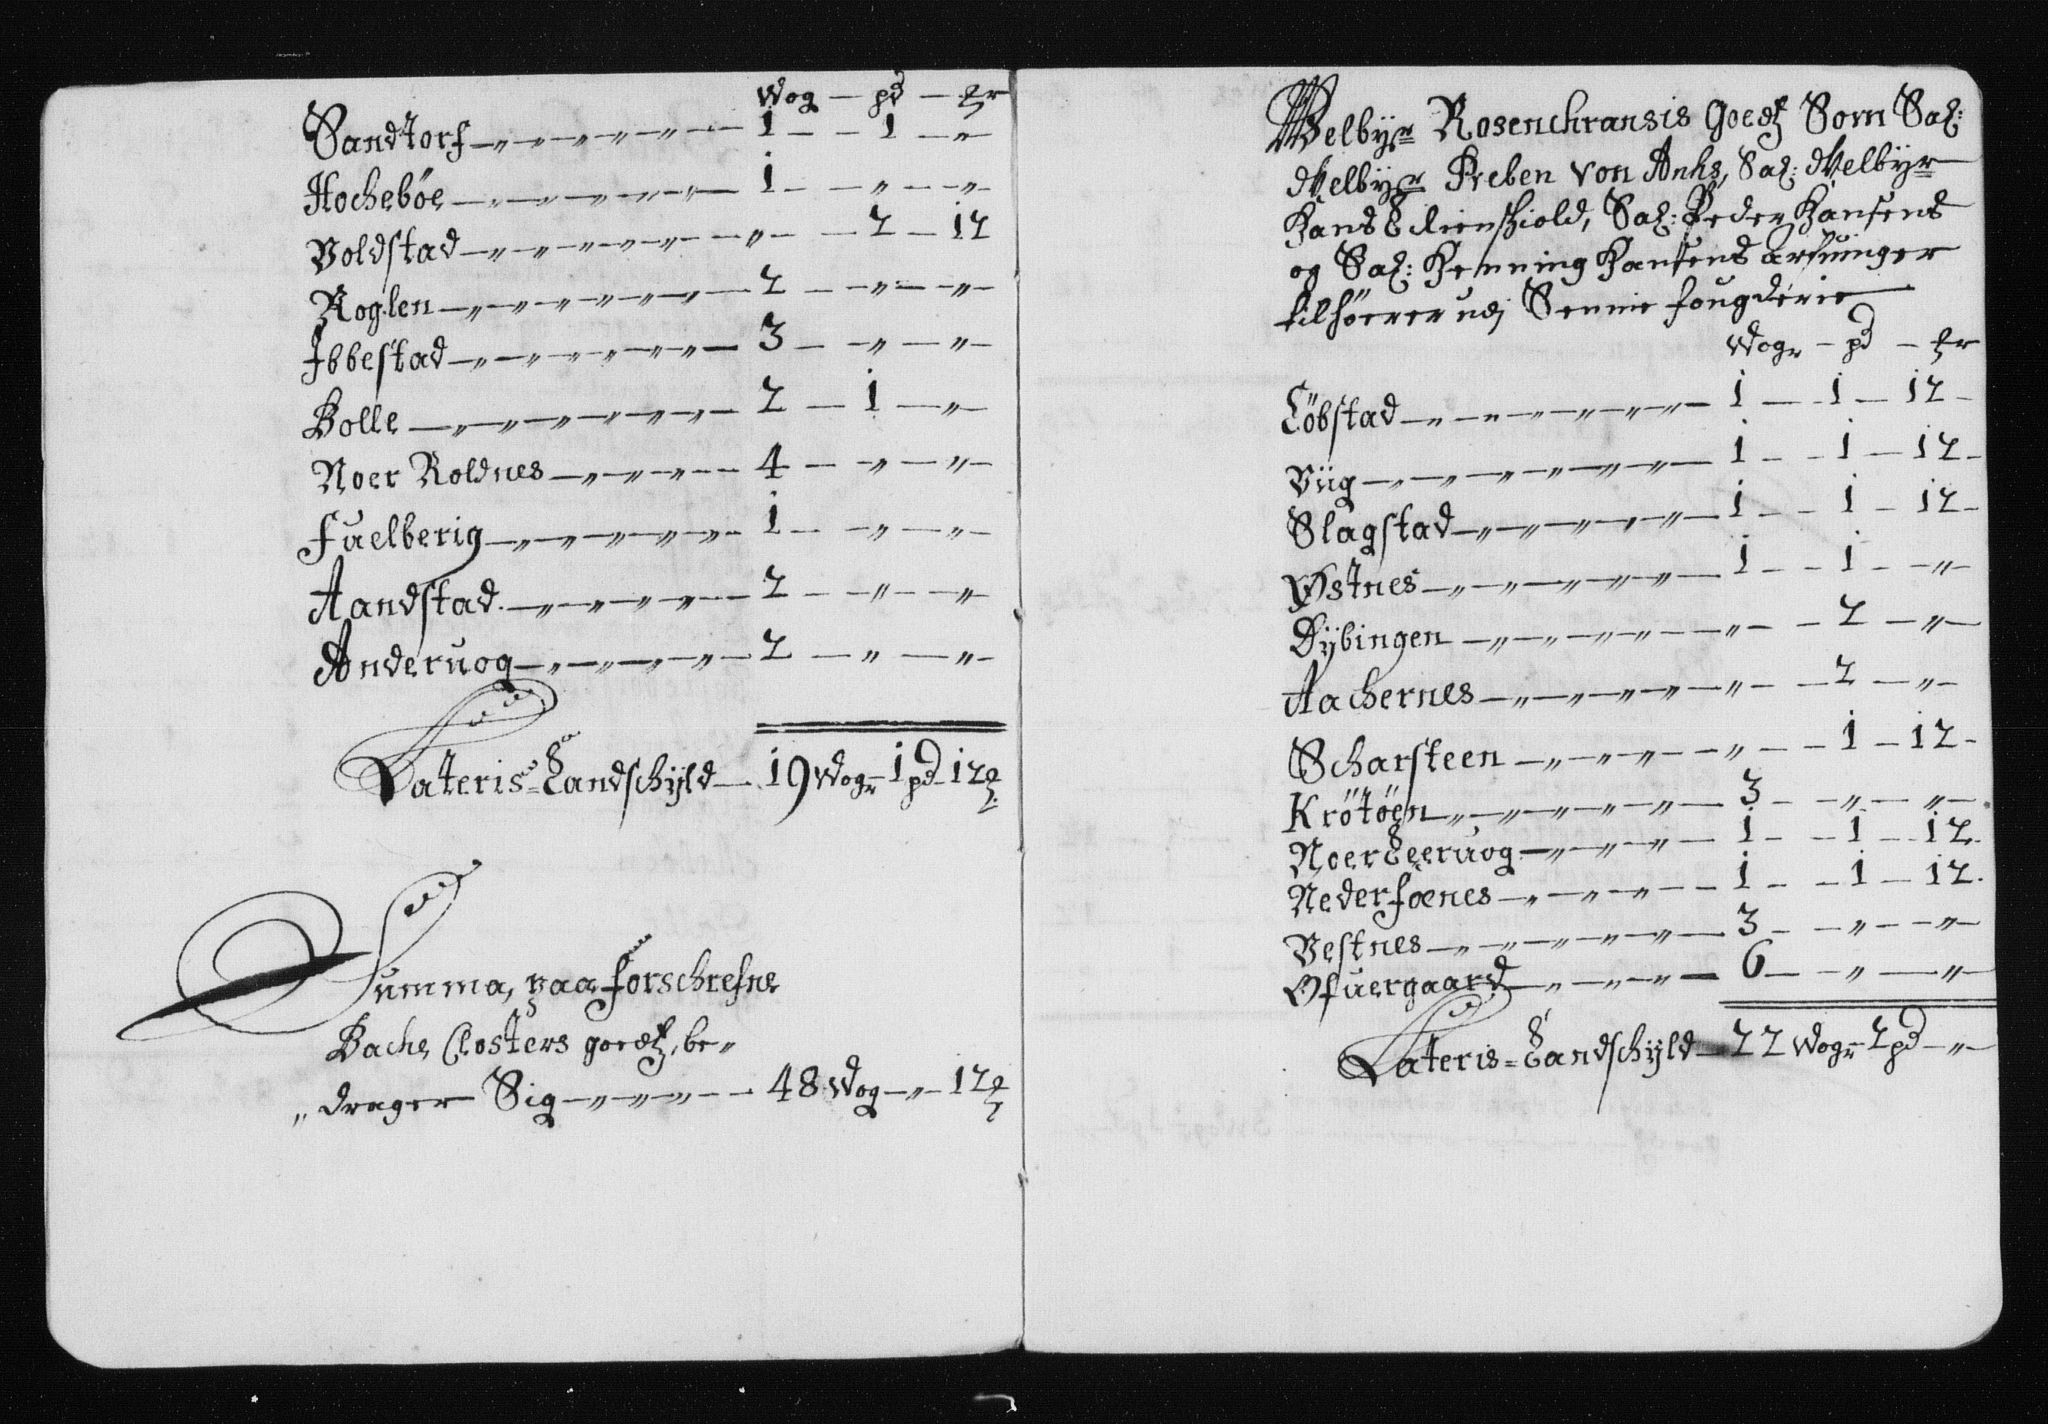 Wog — pd — ℔r
Sandtorf — 1 — 1 — „
Hochebøe — 1 — „ — „
Voldstad — „ — 2 — 12
Roglen — 2 — „ — „
Ibbestad — 3 — „ — „
Bolle — 2 — 1 — „
Noer Roldnes — 4 — „ — „
Fuelberig — 1 — „ — „
Aandstad — 2 — „ — „
Anderuog — 2 — „ — „
Lateris Landschyld — 19 Wogr 1 pd 12 ℔
Summa, paa forschrefne
Bache Closters goedtz, be„
„drager Sig — 48 Wog — „ — 12 ℔
Welbyr Rosenchransis Goedtz Som Sal:
Welbyr Preben von Anhs, Sal: Welbyr
Hans Lilienskiold, Sal: Peder Hansens
og Sal: Henning Hansens arfuinger
tilhörer udj Sennie fougderie
Wogr — pd — ℔r
Löbstad — 1 — 1 — 12
Viig — 1 — 1 — 12
Slagstad — 1 — 1 — 12
Østnes — 1 — 1 — „
Dybingen — „ — 2 — „
Aachernes — „ — 2 — „
Scharsteen — „ — 1 — 12
Krötöen — 3 — „ — „
Noer Leeruog — 1 — 1 — 12
Nederfoenes — 1 — 1 — 12
Vestnes — 3 — „ — „
Ofuergaard — 6 — „ — „
Lateris Landschyld — 22 Wogr 2 pd — „